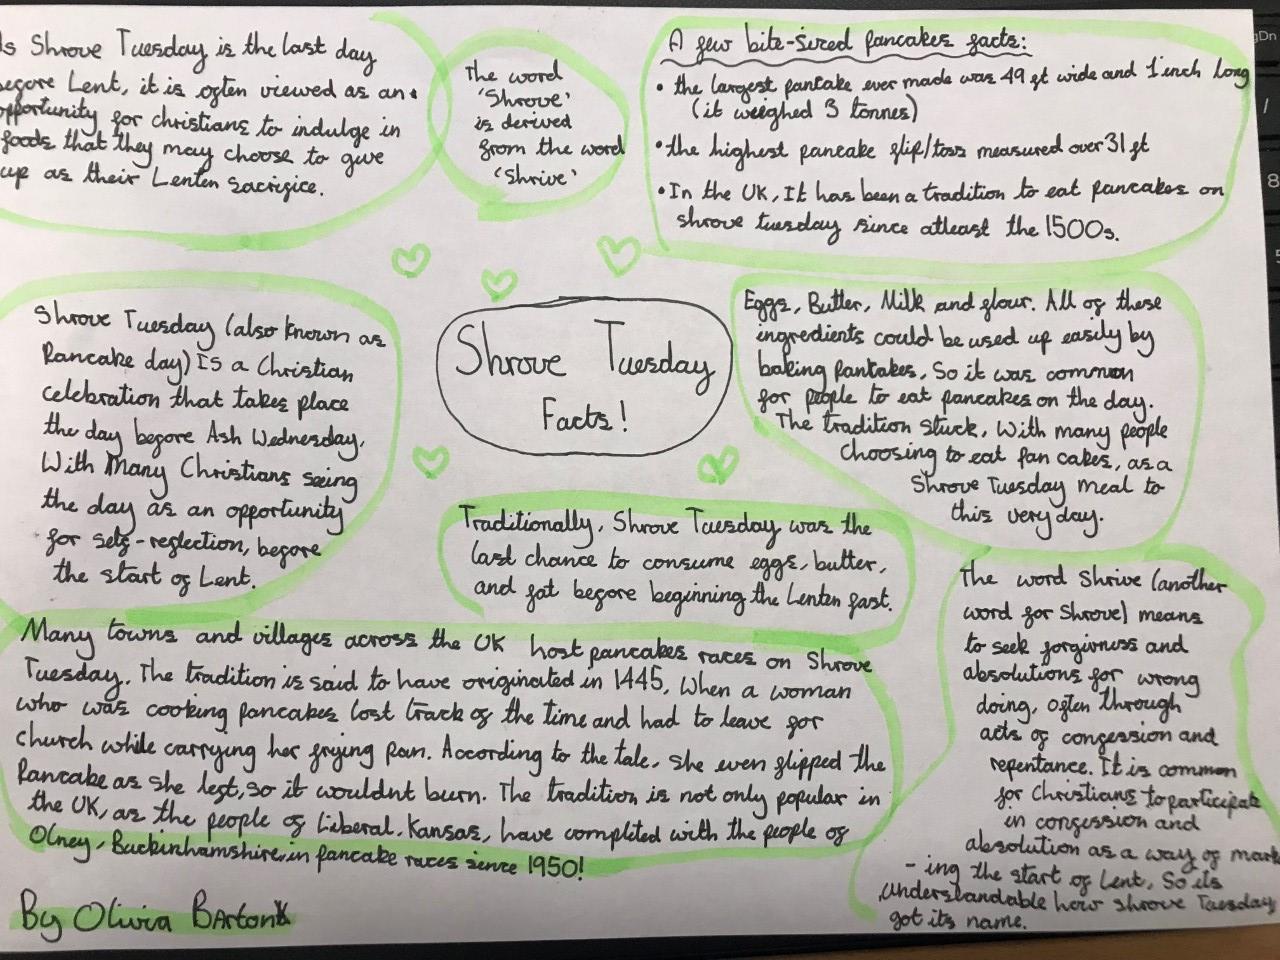 As Shrove Tuesday is the last day
before Lent, it is often viewed as an
opportunity for christians to indulge in
foods that they may choose to give
up as their Lenten sacrifice.
The word
'Shrove'
is derived
from the word
'Shrive'
A few bite-sized pancakes facts:
• the largest pancake ever made was 49 ft wide and 1 inch long
(it weighed 3 tonnes)
• the highest pancake flip/toss measured over 31 ft
• In the UK, It has been a tradition to eat pancakes on
shrove tuesday since atleast the 1500s.
Shrove Tuesday (also known as
Pancake day) Is a Christian
celebration that takes place
the day before Ash Wednesday,
With Many Christians seeing
the day as an opportunity
for self-reflection, before
the start of Lent.
Shrove Tuesday
Facts!
Eggs, Butter, Milk and flour. All of these
ingredients could be used up easily by
baking pancakes, So it was common
for people to eat pancakes on the day.
The tradition stuck, With many people
choosing to eat pan cakes, as a
Shrove Tuesday meal to
this very day.
Traditionally, Shrove Tuesday was the
last chance to consume eggs, butter,
and fat before beginning the Lenten fast.
The word Shrive (another
word for Shrove) means
to seek forgivness and
absolutions for wrong
doing, often through
acts of confession and
repentance. It is common
for Christians to participate
in confession and
absolution as a way of mark
-ing the start of Lent, So its
understandable how shrove Tuesday
got its name.
Many towns and villages across the UK host pancakes races on Shrove
Tuesday. The tradition is said to have originated in 1445, When a woman
who was cooking pancakes lost track of the time and had to leave for
church while carrying her frying pan. According to the tale, she even flipped the
Pancake as she left, so it wouldnt burn. The tradition is not only popular in
the UK, as the people of Liberal, Kansas, have complted with the people of
Olney, Buckinhamshire, in pancake races since 1950!
By Olivia BArton
gDn
/
8
5